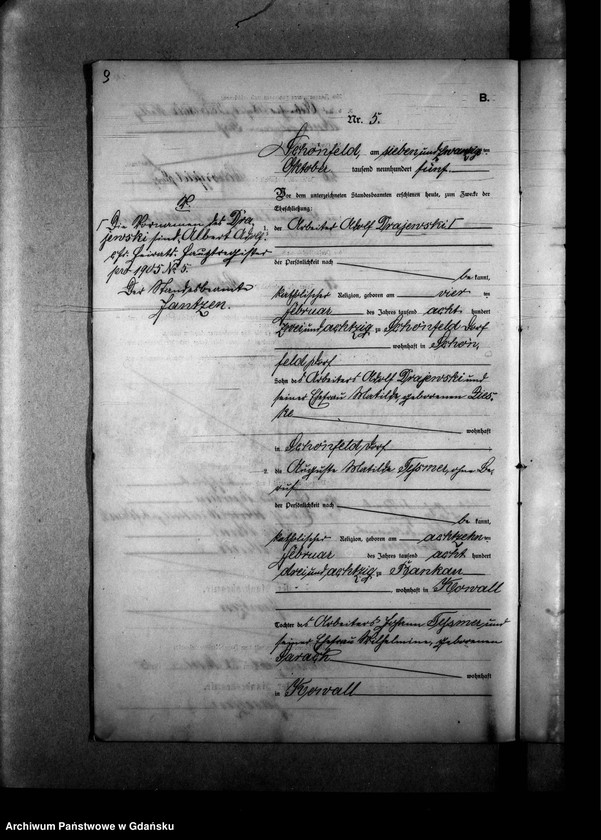 9
B.
Nr. 5.
Schönfeld, am sieben und zwanzig ten
Oktober tausend neunhundert fünf
Vor dem unterzeichneten Standesbeamten erschienen heute, zum Zwecke der
Eheschließung:
1. der Arbeiter Adolf Drajewski Γ
der Persönlichkeit nach
be kannt,
katholischer Religion, geboren am vier ten
Februar des Jahres tausend acht hundert
zwei und achtzig zu Schönfeld Dorf
, wohnhaft in Schön
feld, Dorf
Sohn des Arbeiters Adolf Drajewski und
seiner Ehefrau Matilde, geborenen
wohnhaft
in Schönfeld, Dorf
2. die Auguste Matilde Tessmer, ohne Be
ruf
der Persönlichkeit nach
be kannt,
katholischer Religion, geboren am achtzehn ten
Februar des Jahres tausend acht hundert
drei und achtzig zu Rankau
, wohnhaft in Kowall
Tochter des Arbeiters Johann Tessmer und
seiner Ehefrau Wilhelmine, geborenen
wohnhaft
in Kowall
Γ Die Vornamen des Dra
jewski sind "Albert Adolf"
cfr. Heirats-Hauptregister
pro 1905 No 5.
Der Standesbeamte
Jantzen.
Archiwum Państwowe w Gdańsku